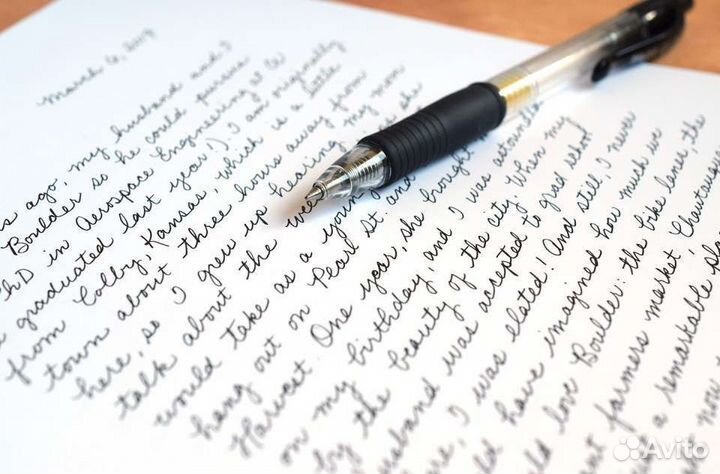 March 6, 2018
ago, my husband and I
Boulder so he could pursue
PhD in Aerospace Engineering at CU
graduated last year!) I am originally
from Colby, Kansas, which is a little
town about three hours away from
here, so I grew up hearing my mom
talk about the she
would take as a young
hang out on Pearl St. and
Harvest. One year, she brought
on my birthday, and I was astounded
by the beauty of the city. When my
husband was accepted to grad school
I was elated! And still, I never
have imagined how much we
love Boulder: the bike lanes, the
farmers market, Chautauqua
a remarkable
now
Avito